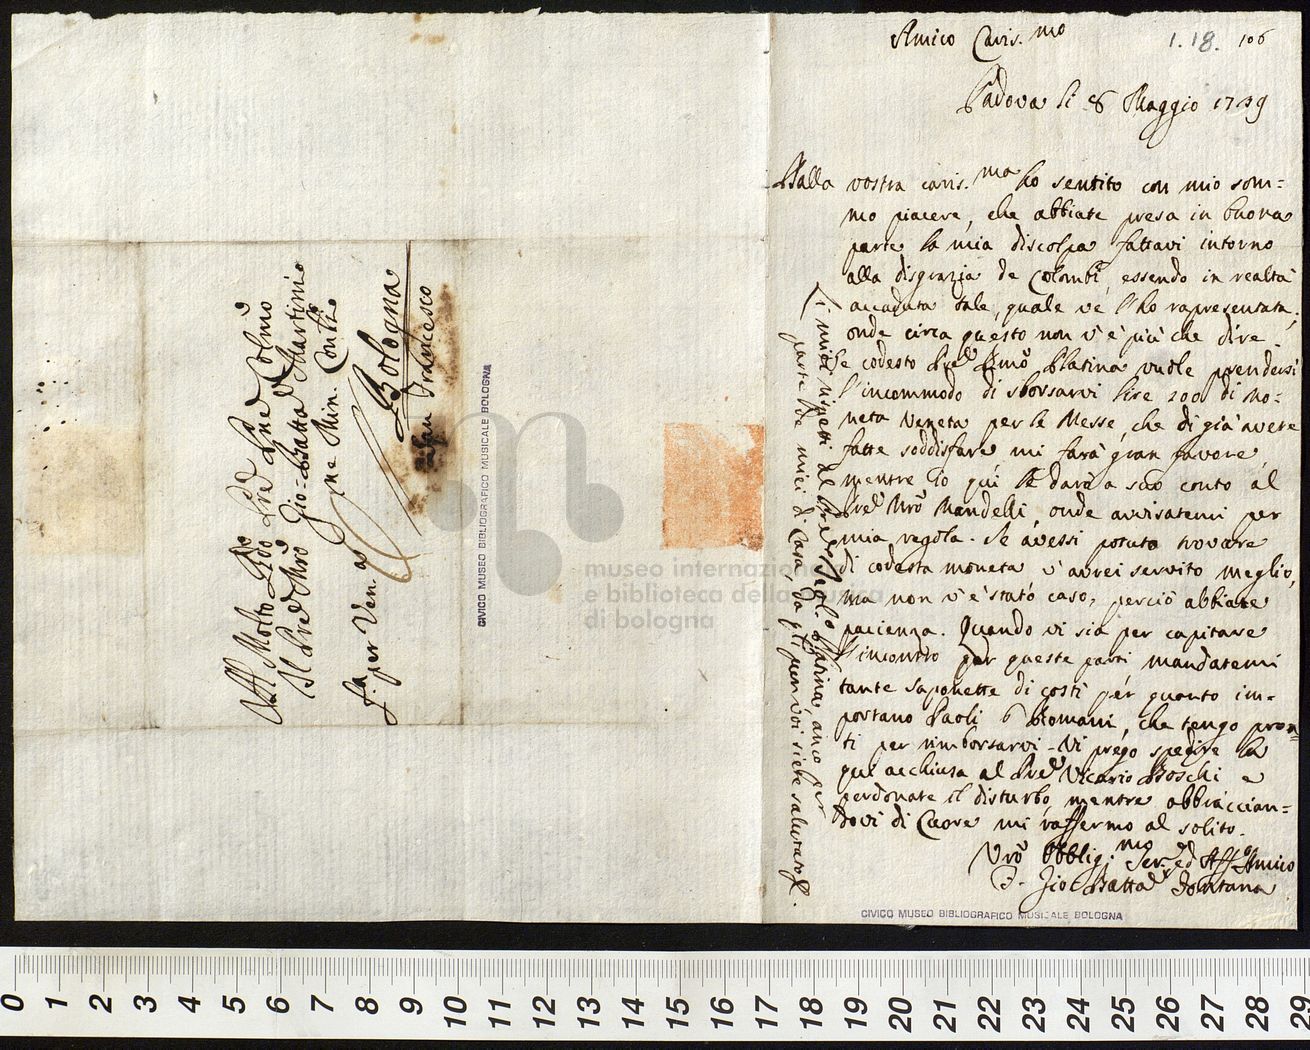 Amico Caris.mo
1.18. 106
Padova li 8 Maggio 1749
Dalla vostra caris.ma ho sentito con mio som=
mo piacere, che abbiate presa in buona
parte la mia discolpa fattavi intorno
alla disgrazia de Colombi, essendo in realtà
accaduta tale, quale ve l'ho rapresentata,
onde circa questo non v'è più che dire.
Se codesto Pre Platina vuole prendersi
l'incommodo di sborsarvi lire 200 di mo=
neta Veneta per le Messe, che di già avete
fatte soddisfare mi farà gran favore,
mentre Io quì le darò a suo conto al
Pre Mrõ Mandelli, onde avvisatemi per
mia regola. Se avessi potuto trovare
di codesta moneta v'avrei servito meglio,
ma non v'è stato caso, perciò abbiate
pacienza. Quando vi sia per capitare
l'incontro per queste parti mandatemi
tante saponette di costì per quanto im=
portano Paoli 6 Romani, che tengo pron=
ti per rimborsarvi. Vi prego spedire la
quì acchiusa al Pre Vicario Boschi e
perdonate il disturbo, mentre abbraccian=
dovi di Cuore mi raffermo al solito.
Vrõ Obblig.mo Ser. ed Aff.o Amico
F. Gio Batta Fontana
Li miei rispetti al Pre Platina, anco per
parte de miei di Casa, da quì voi siete salutato
Al Molto Rdo Pre Pne Colmo
Il Pre Mrõ Gio: Batta Martini
ne Min. Conti
F.a per Ven.a Bologna
San Francesco
CIVICO MUSEO BIBLIOGRAFICO MUSICALE BOLOGNA
CIVICO MUSEO BIBLIOGRAFICO MUSICALE BOLOGNA
museo internazionale
e biblioteca della musica
di bologna
0 1 2 3 4 5 6 7 8 9 10 11 12 13 14 15 16 17 18 19 20 21 22 23 24 25 26 27 28 29